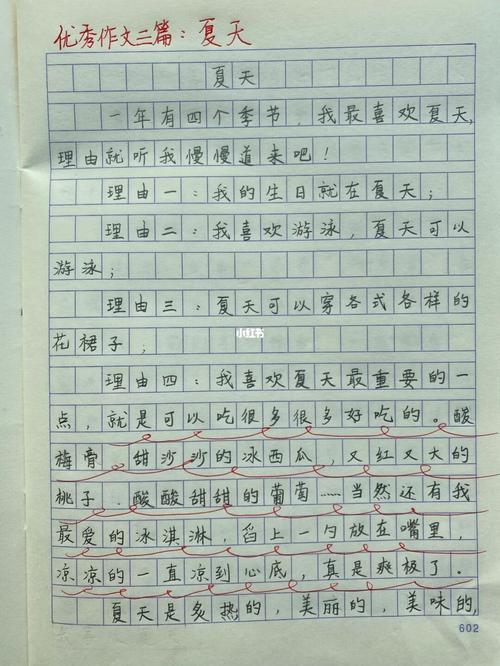 优秀作文二篇：夏天
夏天
一年有四个季节，我最喜欢夏天，
理由就听我慢慢道来吧！
理由一：我的生日就在夏天；
理由二：我喜欢游泳，夏天可以
游泳；
理由三：夏天可以穿各式各样的
花裙子；
小红书
理由四：我喜欢夏天最重要的一
点，就是可以吃很多很多好吃的。酸
梅膏．甜沙沙的冰西瓜，又红又大的
桃子．酸酸甜甜的葡萄……当然还有我
最爱的冰淇淋，舀上一勺放在嘴里，
凉凉的一直凉到心底，真是爽极了．
夏天是炙热的，美丽的，美味的，
602